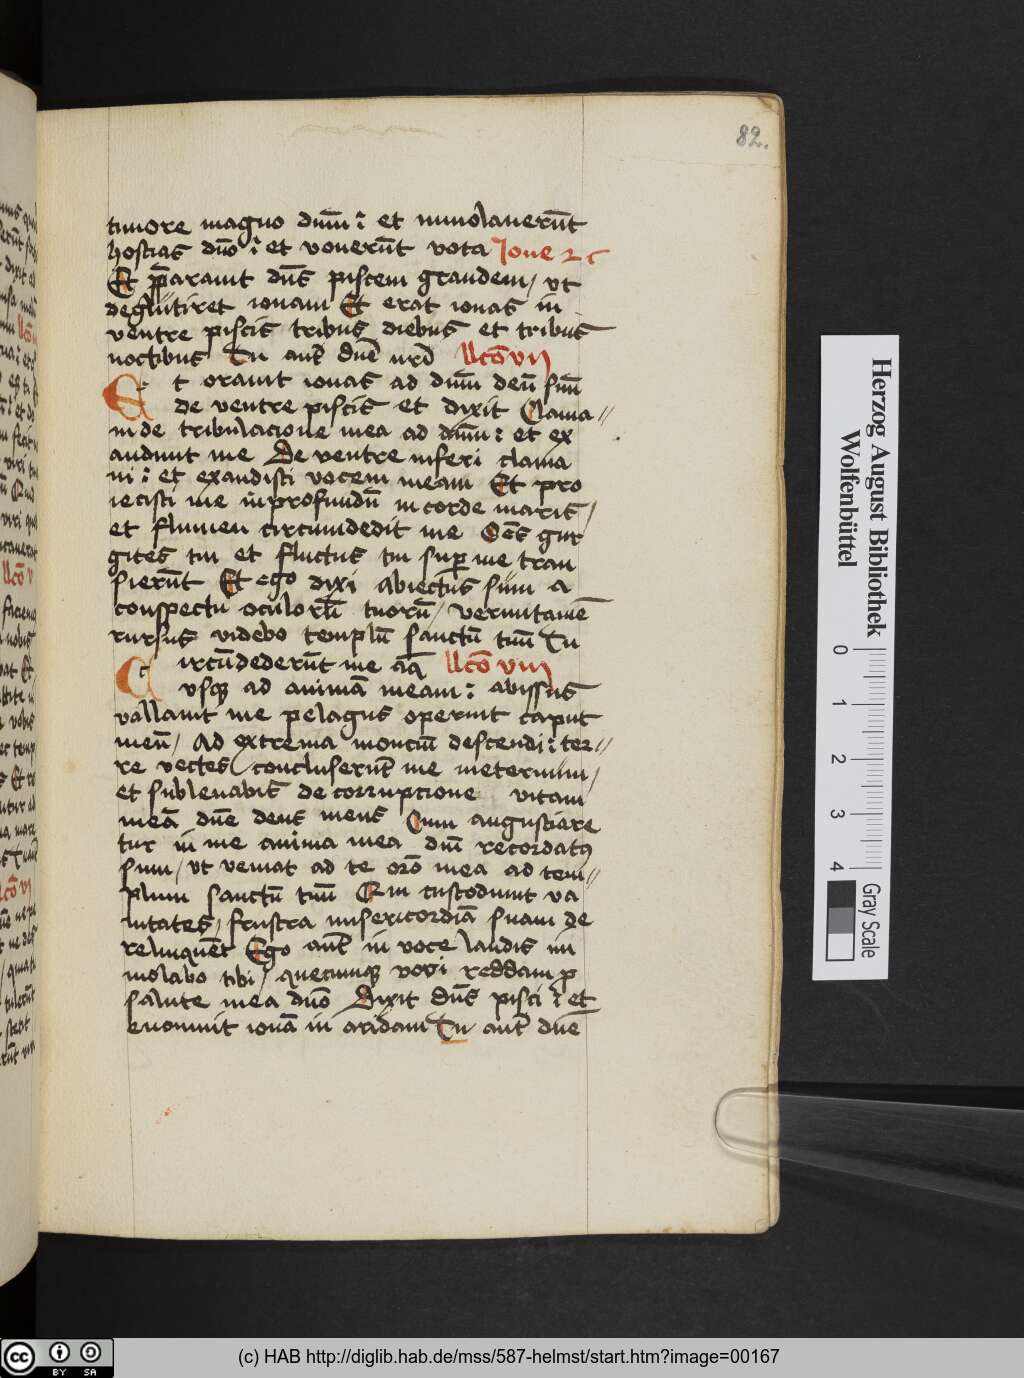 82.
timore magno dnm̄ : et immolauerūt
hostias dn̄o : et vouerūt vota Ione 2 c
Et p̄parauit dn̄s piscem grandem / vt
deglutiret ionam Et erat ionas in
ventre piscis tribus diebus et tribus
noctibus Tu aut̄ dn̄e nr̄d llcō vij
Et orauit ionas ad dnm̄ deū suū
de ventre piscis et dixit Clama //
ui de tribulacione mea ad dnm̄ : et ex
audiuit me De ventre inferi clama
ui : et exaudisti vocem meam Et pro
iecisti me in profundū in corde maris /
et flumen circumdedit me Oēs gur
gites tui et fluctus tui sup me tran
sierūt Et ego dixi Abiectus sum a
conspectu oculorū tuorū / verumtamē
rursus videbo templū sanctū tuū Tu
Circūdederūt me aq̄ llcō viij
vsq ad animā meam : abissus
vallauit me pelagus operuit caput
meū / Ad extrema monciū descendi : ter //
re vectes concluserūt me ineternum /
et subleuabis de corrupcione vitam
meā dn̄e deus meus Cum angustiare
tur in me anima mea dnī recordatus
sum / vt veniat ad te orō mea ad tem //
plum sanctū tuū Qui custodiunt va
nitates / frustra misericordiā suam de
relinquēt Ego aut̄ in voce laudis im
molabo tibi / quecumq vovi reddam p
salute mea dn̄o Dixit dn̄s pisci : et
euomuit ionā in aridam Tu aut̄ dn̄e
Herzog August Bibliothek
Wolfenbüttel
0 1 2 3 4
Gray Scale
cc BY SA
(c) HAB http://diglib.hab.de/mss/587-helmst/start.htm?image=00167